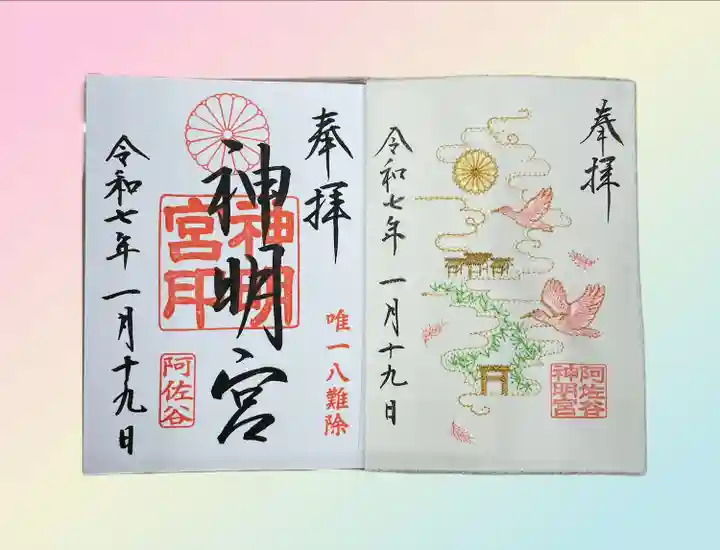 奉拝
唯一八難除
神明宮
神明
宮印
阿佐谷
令和七年 一月十九日
奉拝
阿佐谷
神明宮
令和七年 一月十九日